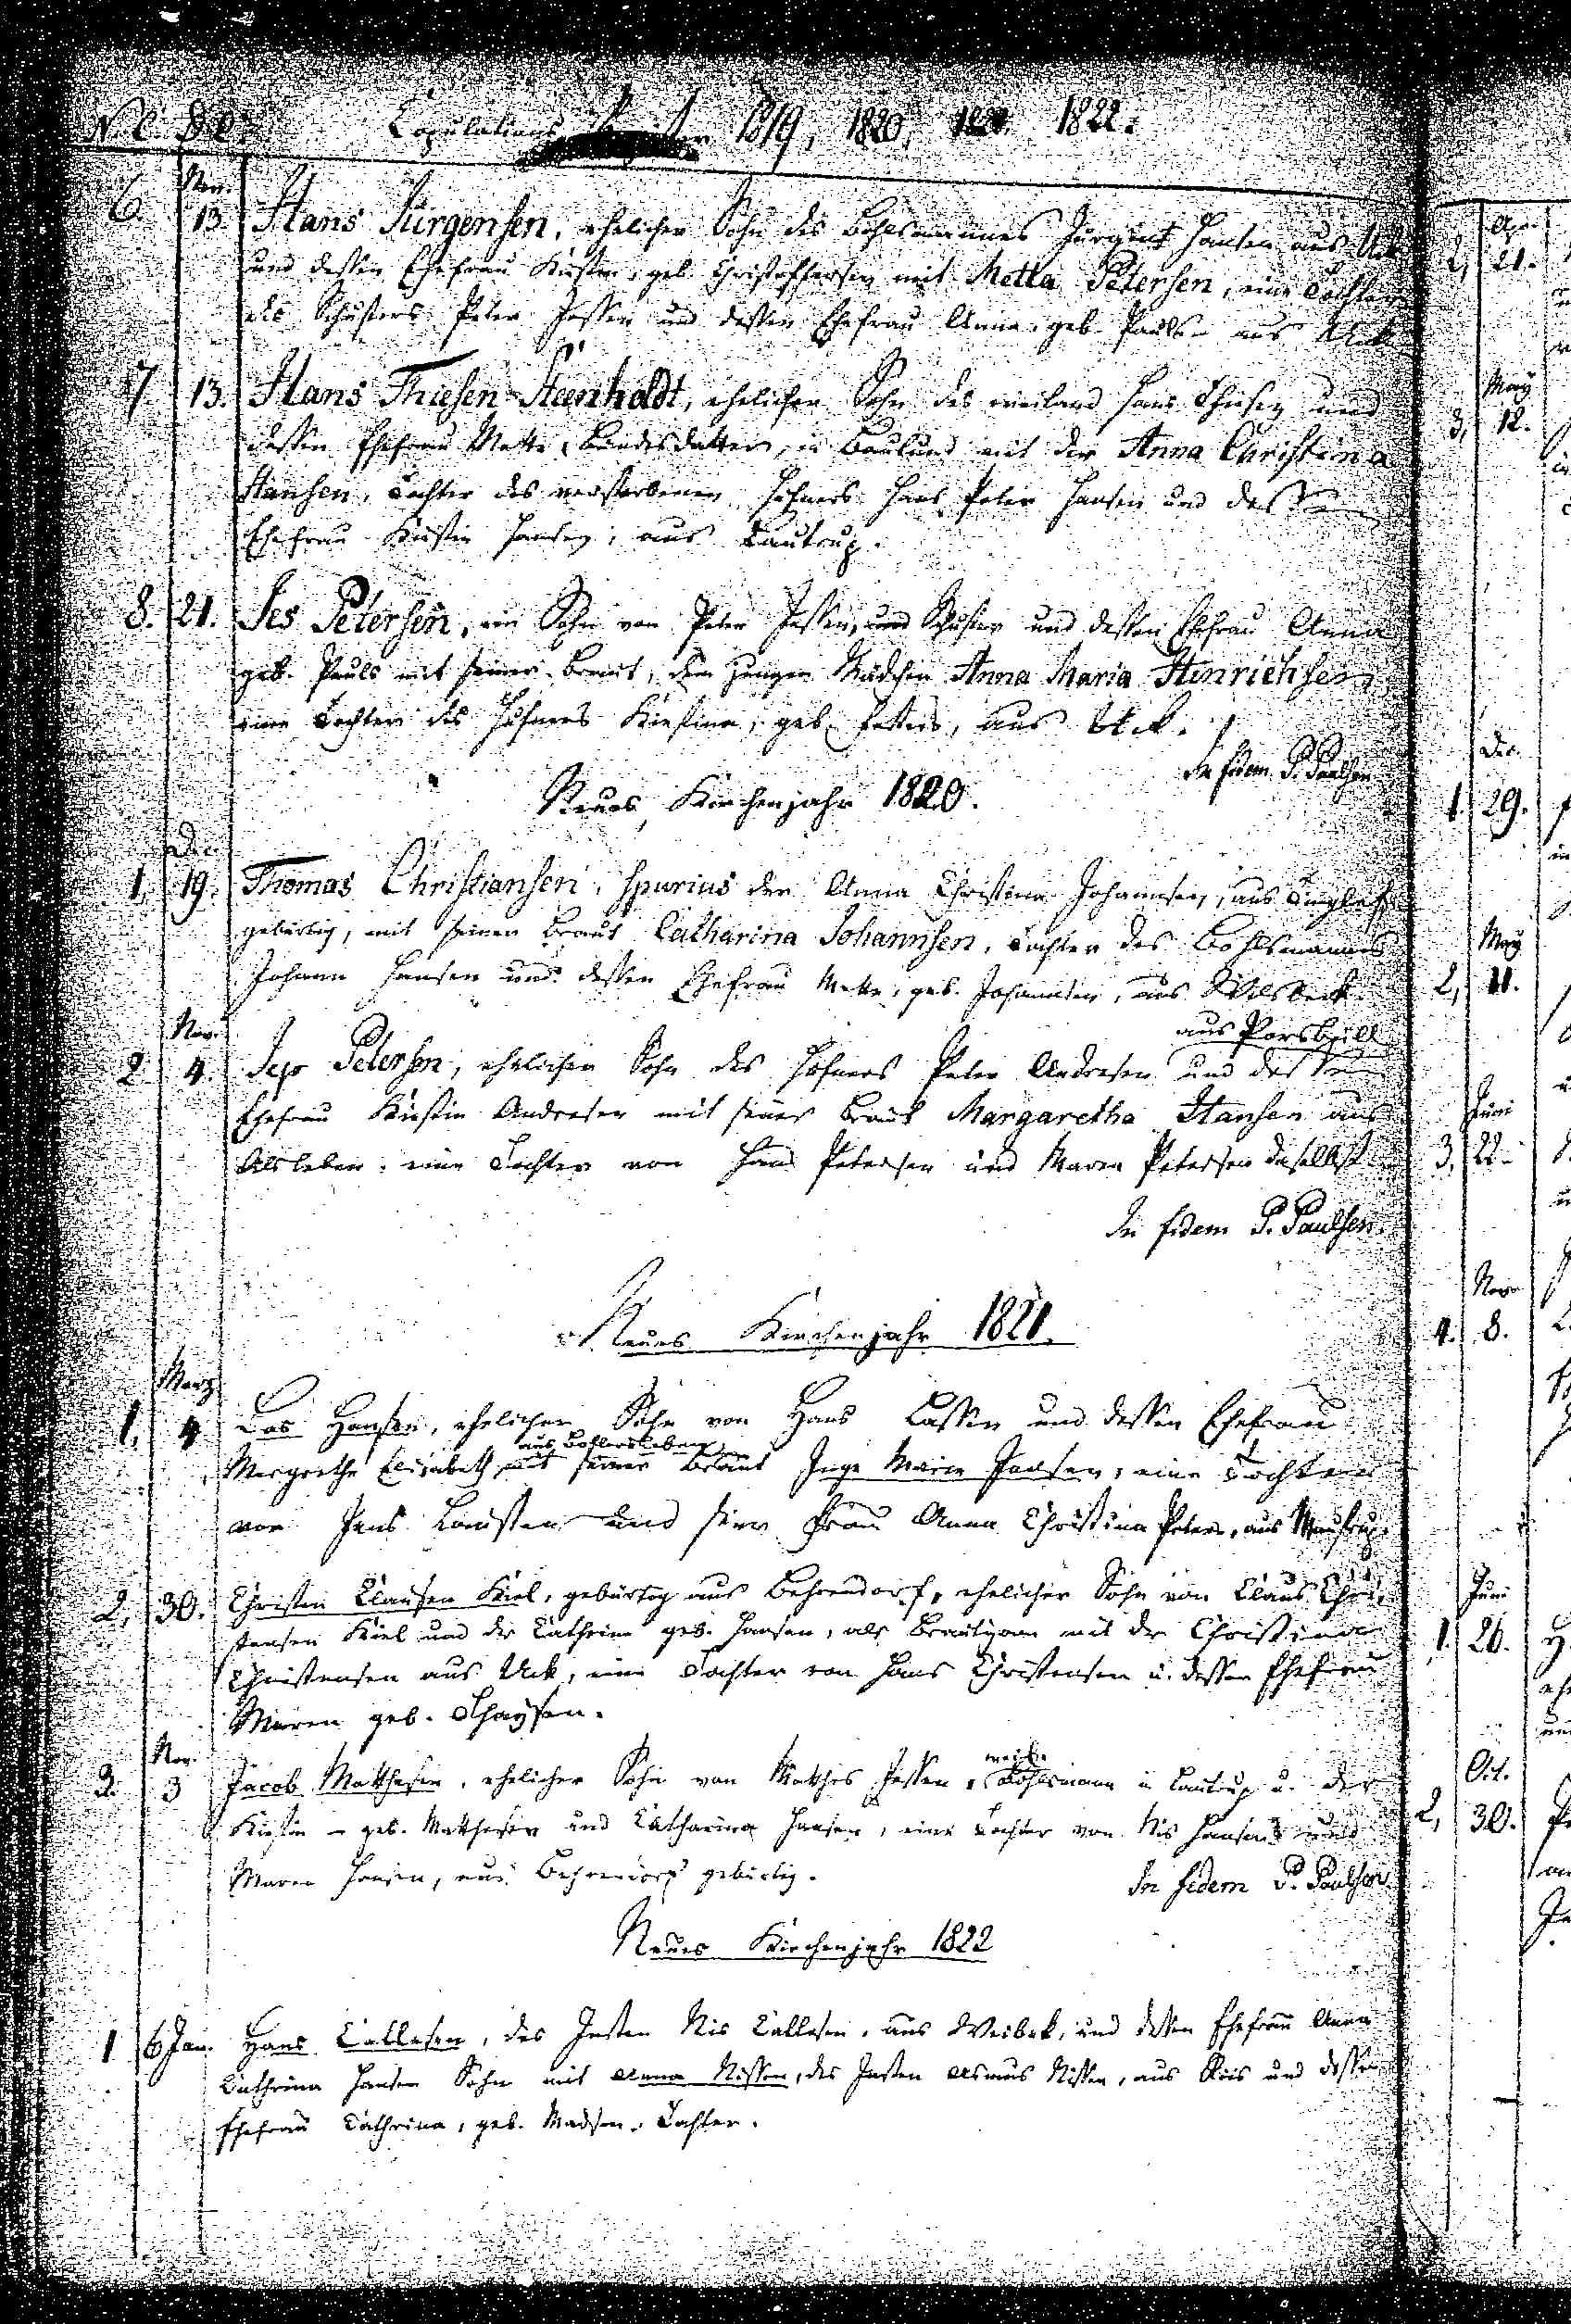 Copulations 1819, 1820, 1821, 1822.
Nov.
6. 13. Hans Jürgensen, ehelicher Sohn des Bohlsmannes Jürgens Hansen aus Uk
und dessen Ehefrau Kirsten, geb. Christoffersen mit Metta Petersen, eine Tochter
des Schusters Peter Jessen und dessen Ehefrau Anna, geb. Pauls aus Uck
7. 13. Hans Thiesen Steenholdt, ehelicher Sohn des weiland Hans Thiesen und
dessen Ehefrau Mette, in Baulund mit der Anna Christina
Hansen, Tochter des verstorbenen Hufners Hans Peter Hansen und dessen
Ehefrau Kirstin Hansen, aus Lautrup.
8. 21. Jes Petersen, ein Sohn von Peter Jessen, Schuster und dessen Ehefrau Anna
geb. Pauls mit seiner Braut, dem jungen Mädchen Anna Maria Hinrichsen,
eine Tochter des Hufners Kirstina, geb. aus Uck.
In fidem P. Paulsen
Neues Kirchenjahr 1820.
Dec.
1, 19. Thomas Christiansen, spurius der Anna Christina Johannsen, aus Tingleff
gebürtig, mit seiner Braut Catharina Johannsen, Tochter des Bohlsmannes
Johann Hansen und dessen Ehefrau Mette, geb. Johannsen, aus
aus Porsbüll
Nov.
2 4. Jep Petersen, ehelicher Sohn des Hufners Peter Andresen und dessen
Ehefrau Kirstin Andresen mit seiner Braut Margaretha Hansen aus
Alsleben, eine Tochter von Hans Petersen und Maren Petersen daselbst
In fidem P. Paulsen.
Neues Kirchenjahr 1821.
Marz
1, 4 Las Hansen, ehelicher Sohn von Hans Lassen und dessen Ehefrau
aus
Margrethe Elisabeth mit seiner Braut Inge Marie Jensen, eine Tochter
von Jens Lausten und seiner Frau Anna Christina Peters, aus
2, 30. Christen Clausen Kiel, gebürtig aus Behrendorf, ehelicher Sohn von Claus Chri-
stensen Kiel und der Cathrine geb. Hansen, als Bräutigam mit der Christina
Christensen aus Uck, eine Tochter von Hans Christensen u. dessen Ehefrau
Maren geb. Thaysen.
Nov.
3. 3 Jacob Matthesen, ehelicher Sohn von Matthes Jessen, Bohlsmann in Lautrup u. der
Kirstin geb. Matthesen und Catharina Hansen, eine Tochter von Nis Hansen und
Maren Hansen, aus Behrendorf gebürtig.
In fidem P. Paulsen
Neues Kirchenjahr 1822
1 6 Jan. Hans Callesen, des Insten Nis Callesen, aus Weibek, und dessen Ehefrau Anna
Cathrina Hansen Sohn mit Anna Nissen, des Insten Asmus Nissen, aus Rüs und dessen
Ehefrau Cathrina, geb. Madsen, Tochter.
Apr.
2, 21.
May
3, 12.
Dec.
1. 29.
May
2, 11.
Juni
3, 22.
Nov.
4. 8.
Juni
1. 26.
Oct.
2, 30.